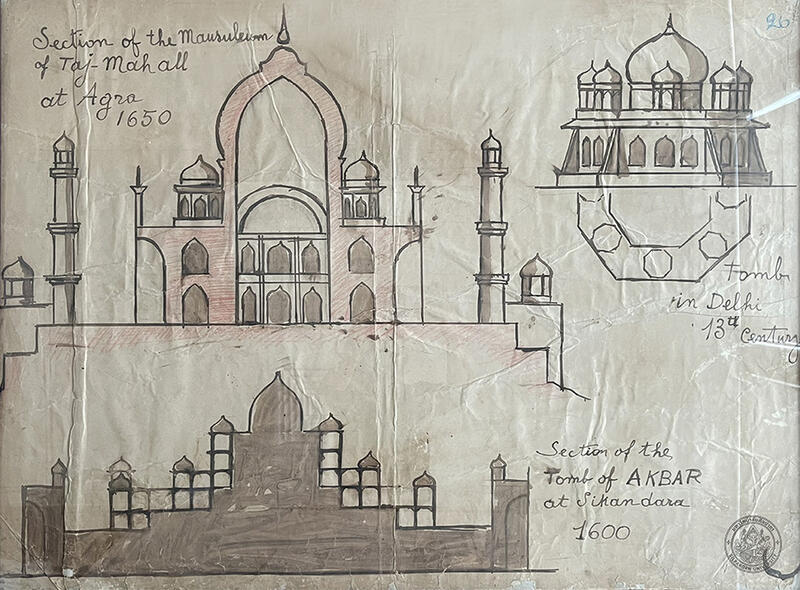 Section of the Mausuleum
of Taj-Mahall
at Agra
1650
26
Tomb
in Delhi
13th Century
Section of the
Tomb of AKBAR
at Sikandara
1600